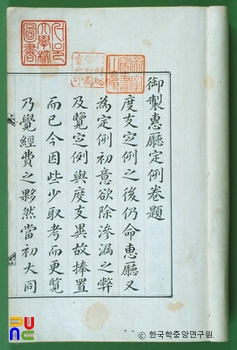 御製惠廳定例卷題
度支定例之後仍命惠廳又
為定例初意欲除滲漏之弊
及覽定例與度支異故捧置
而已今因些少取考而更覽
乃覺經費之夥然當初大同
PUNC
© 한국학중앙연구원.